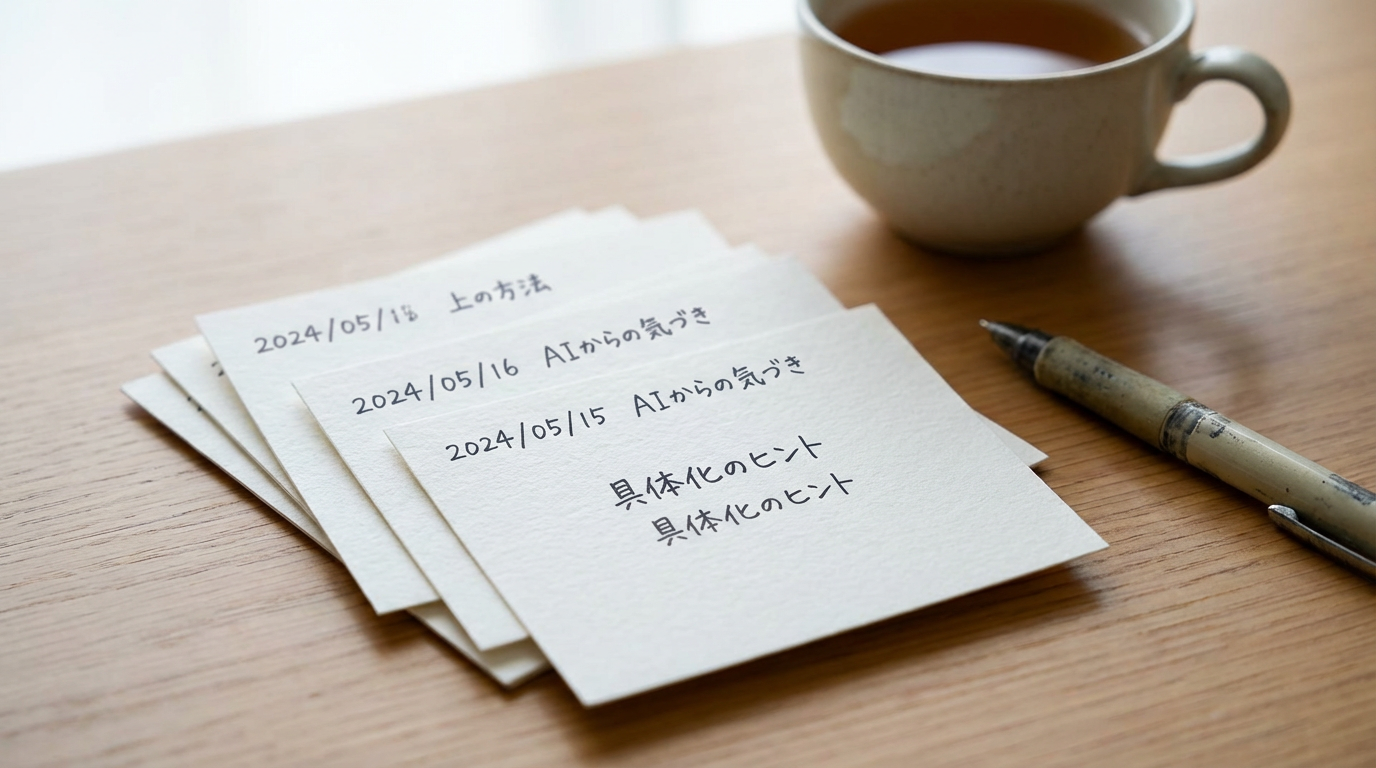 2024/05/18 上の方法
2024/05/16 AIからの気づき
2024/05/15 AIからの気づき
具体化のヒント
具体化のヒント